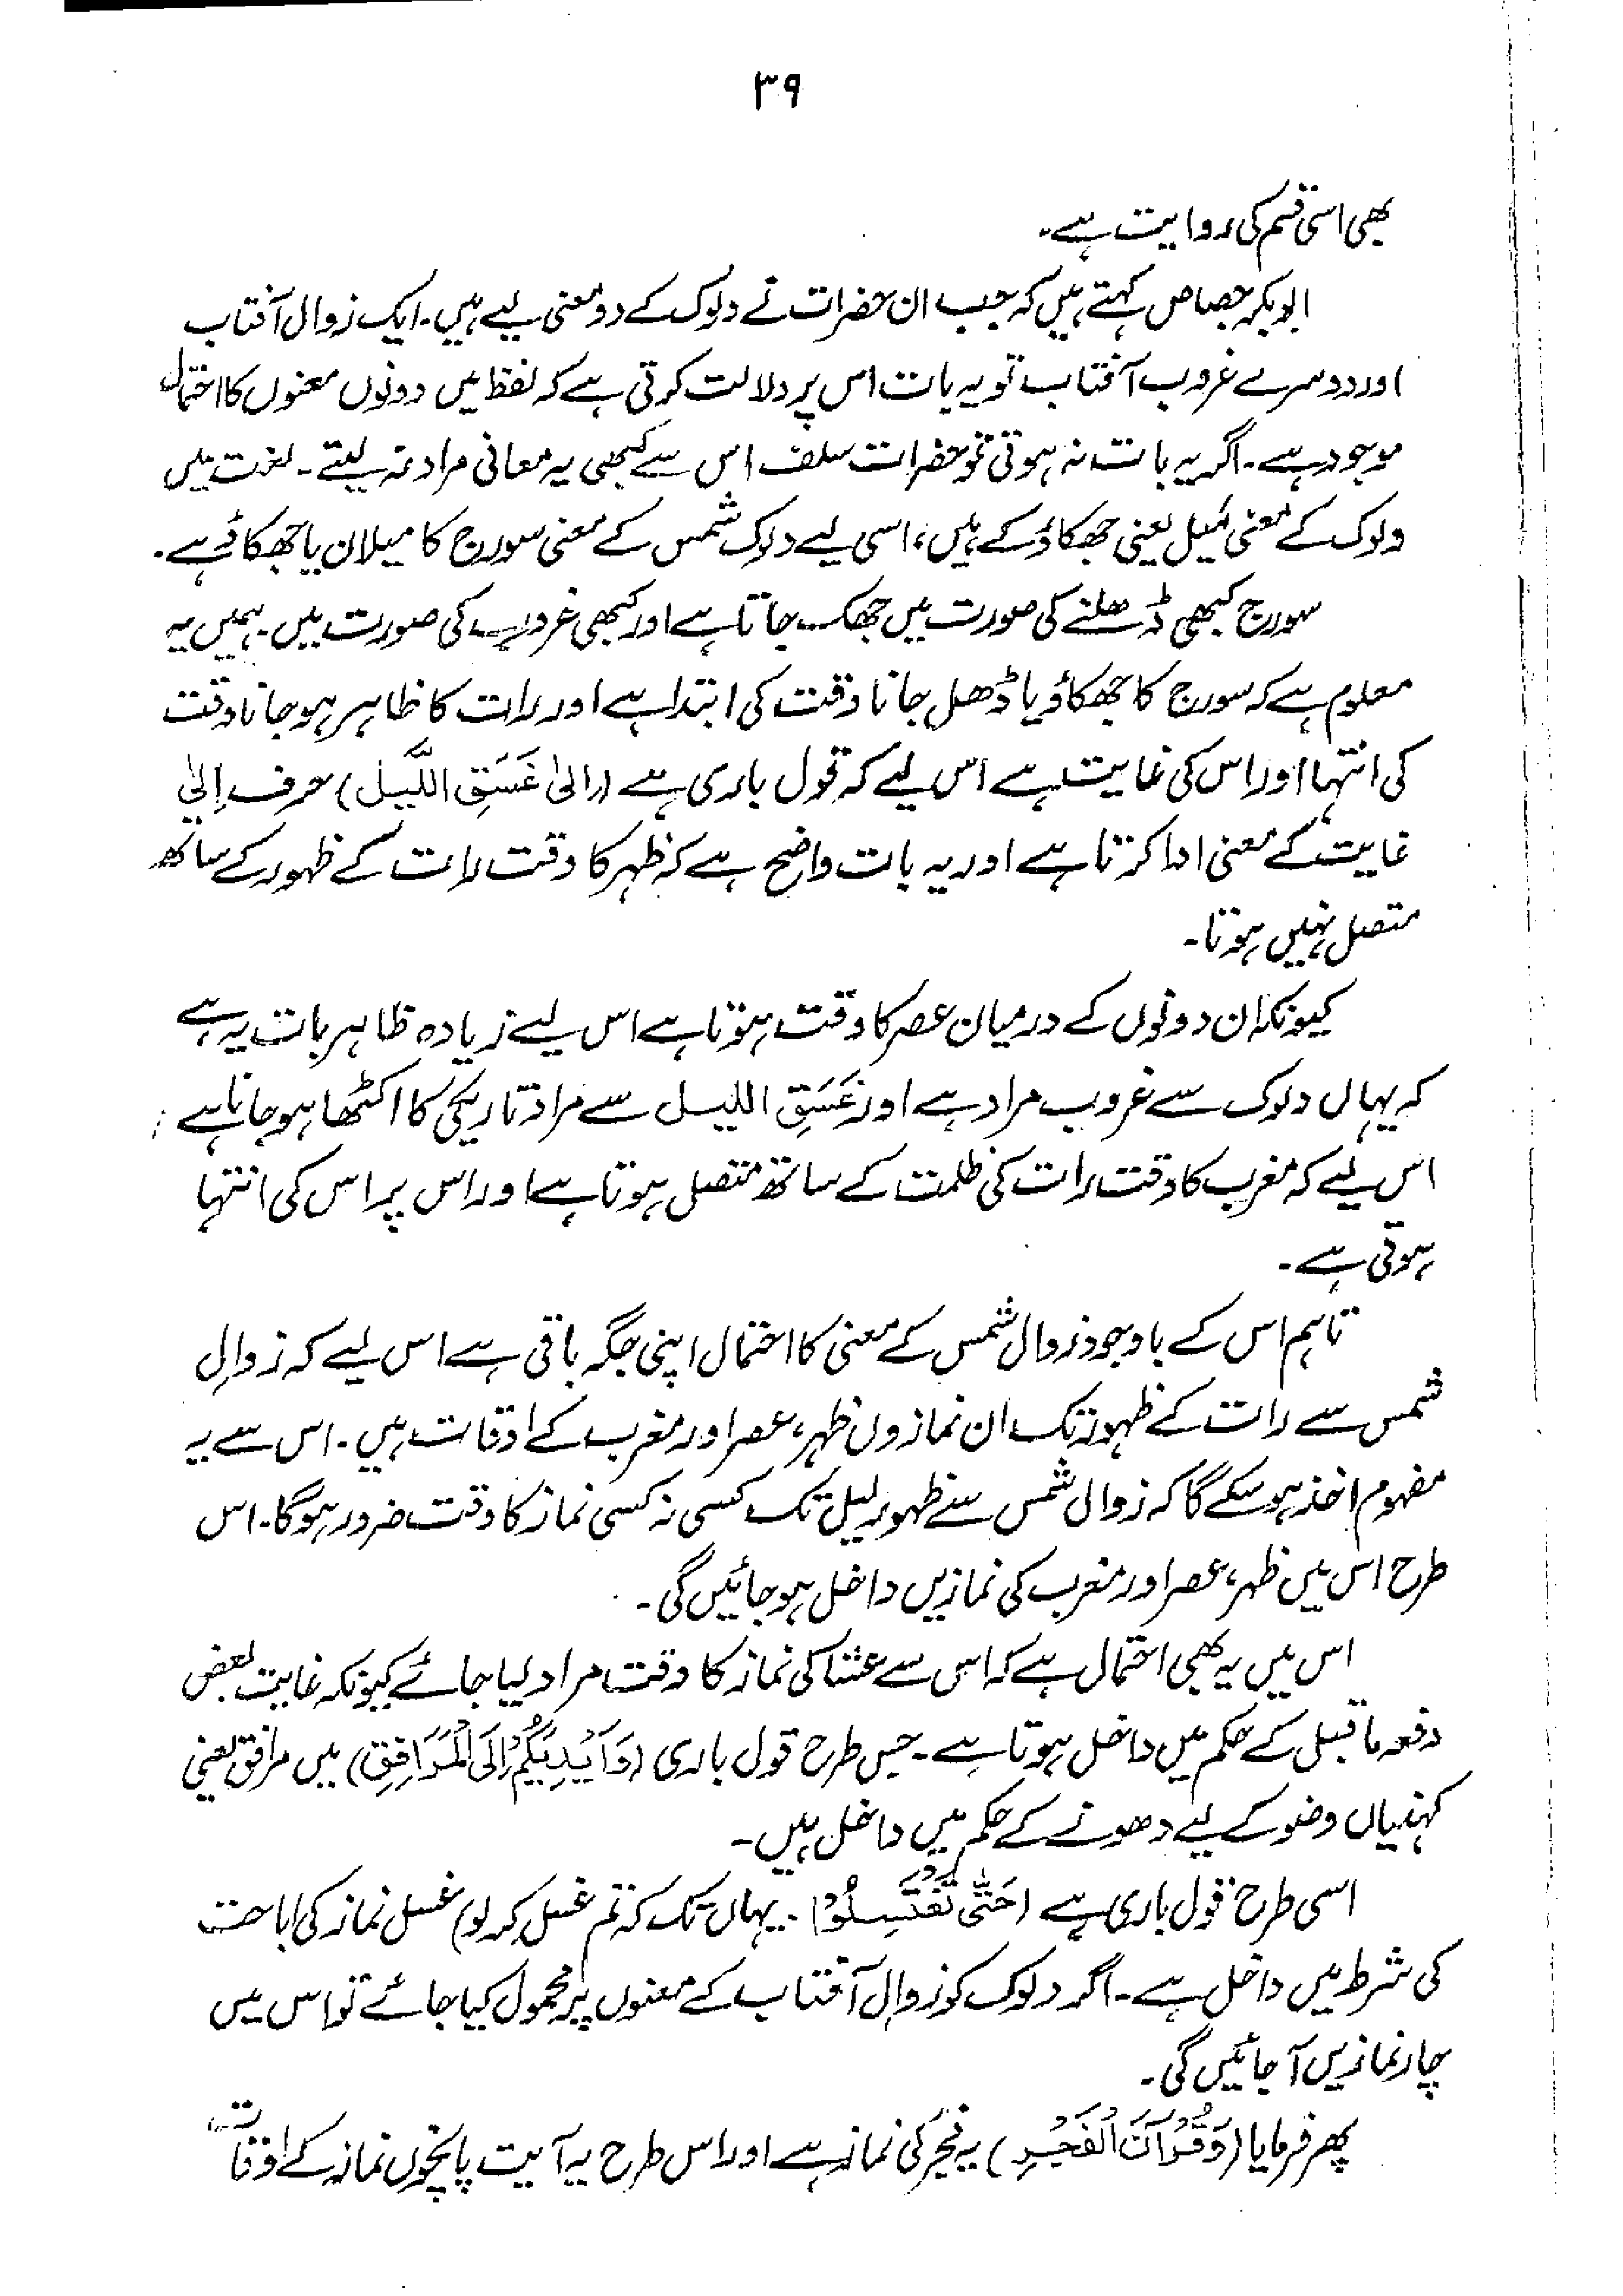 ۳۹
بھی اسی قسم کی روایت ہے۔
ابوبکر جصاص کہتے ہیں کہ جب ان حضرات نے دلوک کے دو معنی لیے ہیں۔ ایک زوال آفتاب
اور دوسرے غروب آفتاب تو یہ بات اس پر دلالت کرتی ہے کہ لفظ میں دونوں معنوں کا احتمال
موجود ہے۔ اگر یہ بات نہ ہوتی تو حضرات سلف اس سے کبھی یہ معانی مراد نہ لیتے۔ لغت میں
دلوک کے معنی مَیل یعنی جھکاؤ کے ہیں، اسی لیے دلوک شمس کے معنی سورج کا میلان یا جھکاؤ ہے۔
سورج کبھی ڈھلنے کی صورت میں جھک جاتا ہے اور کبھی غروب کی صورت میں۔ ہمیں یہ
معلوم ہے کہ سورج کا جھکاؤ یا ڈھل جانا وقت کی ابتدا ہے اور رات کا ظاہر ہو جانا وقت
کی انتہا اور اس کی غایت ہے اس لیے کہ قول باری ہے (اِلیٰ غَسَقِ اللَّیل) حرف اِلیٰ
غایت کے معنی ادا کرتا ہے اور یہ بات واضح ہے کہ ظہر کا وقت رات کے ظہور کے ساتھ
متصل نہیں ہوتا۔
کیونکہ ان دونوں کے درمیان عصر کا وقت ہوتا ہے اس لیے زیادہ ظاہر بات یہ ہے
کہ یہاں دلوک سے غروب مراد ہے اور غَسَقِ اللیل سے مراد تاریکی کا اکٹھا ہو جانا ہے
اس لیے کہ مغرب کا وقت رات کی ظلمت کے ساتھ متصل ہوتا ہے اور اس پر اس کی انتہا
ہوتی ہے۔
تاہم اس کے باوجود زوال شمس کے معنی کا احتمال اپنی جگہ باقی ہے اس لیے کہ زوالِ
شمس سے رات کے ظہور تک ان نمازوں ظہر، عصر اور مغرب کے اوقات ہیں۔ اس سے یہ
مفہوم اخذ ہو سکے گا کہ زوال شمس سے ظہور لیل تک کسی نہ کسی نماز کا وقت ضرور ہوگا۔ اس
طرح اس میں ظہر، عصر اور مغرب کی نمازیں داخل ہو جائیں گی۔
اس میں یہ بھی احتمال ہے کہ اس سے عشا کی نماز کا وقت مراد لیا جائے کیونکہ غایت بعض
دفعہ ماقبل کے حکم میں داخل ہوتا ہے۔ جس طرح قول باری (وَاَیْدِیَکُمْ اِلَی الْمَرَافِقِ) میں مرافق یعنی
کہنیاں وضو کے لیے دھونے کے حکم میں داخل ہیں۔
اسی طرح قول باری ہے (حَتّٰی تَغْتَسِلُوْا۔ یہاں تک کہ تم غسل کر لو) غسل نماز کی اباحت
کی شرط میں داخل ہے۔ اگر دلوک کو زوال آفتاب کے معنوں پر محمول کیا جائے تو اس میں
چار نمازیں آ جائیں گی۔
پھر فرمایا (وَقُرْآنَ الْفَجْرِ) یہ فجر کی نماز ہے اور اس طرح یہ آیت پانچوں نماز کے اوقات